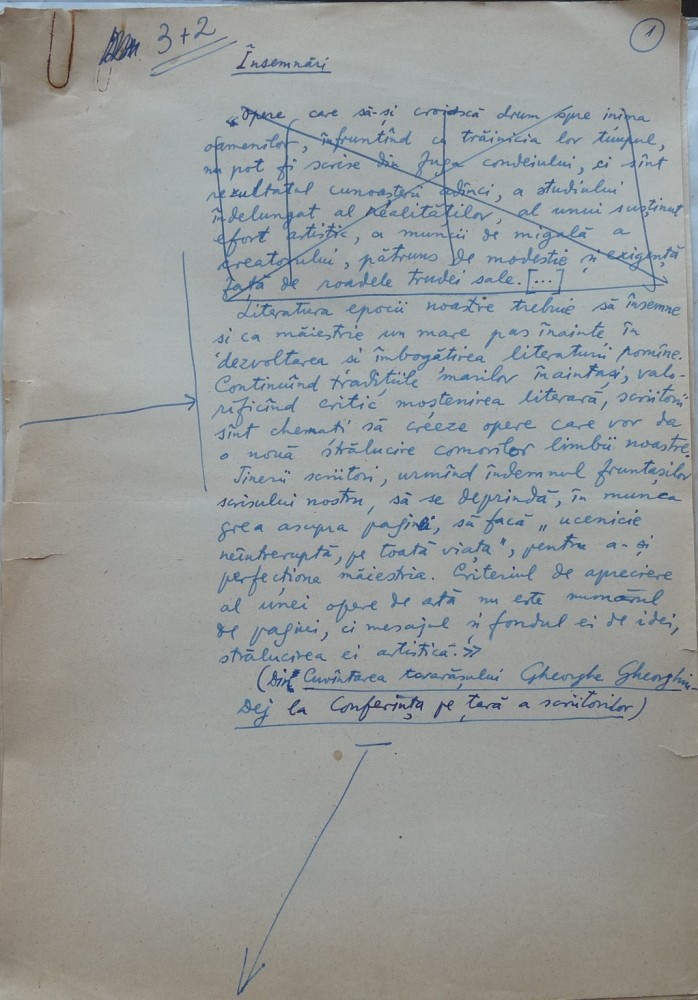 3+2
1
Însemnări
„Opere care să-și croiască drum spre inima
oamenilor, înfruntînd cu trăinicia lor timpul,
nu pot fi scrise din fuga condeiului, ci sînt
rezultatul cunoașterii adînci, a studiului
îndelungat al realităților, al unui susținut
efort artistic, a muncii de migală a
creatorului, pătruns de modestie și exigență
față de roadele trudei sale. [...]
Literatura epocii noastre trebuie să însemne
și ca măiestrie un mare pas înainte în
dezvoltarea și îmbogățirea literaturii romîne.
Continuînd tradițiile marilor înaintași, valo-
rificînd critic moștenirea literară, scriitorii
sînt chemați să creeze opere care vor da
o nouă strălucire comorilor limbii noastre.
Tinerii scriitori, urmînd îndemnul fruntașilor
scrisului nostru, să se deprindă, în munca
grea asupra paginii, să facă „ucenicie
neîntreruptă, pe toată viața", pentru a-și
perfecționa măiestria. Criteriul de apreciere
al unei opere de artă nu este numărul
de pagini, ci mesajul și fondul ei de idei,
strălucirea ei artistică.»
(Din Cuvîntarea tovarășului Gheorghe Gheorghiu
Dej la Conferința pe țară a scriitorilor)